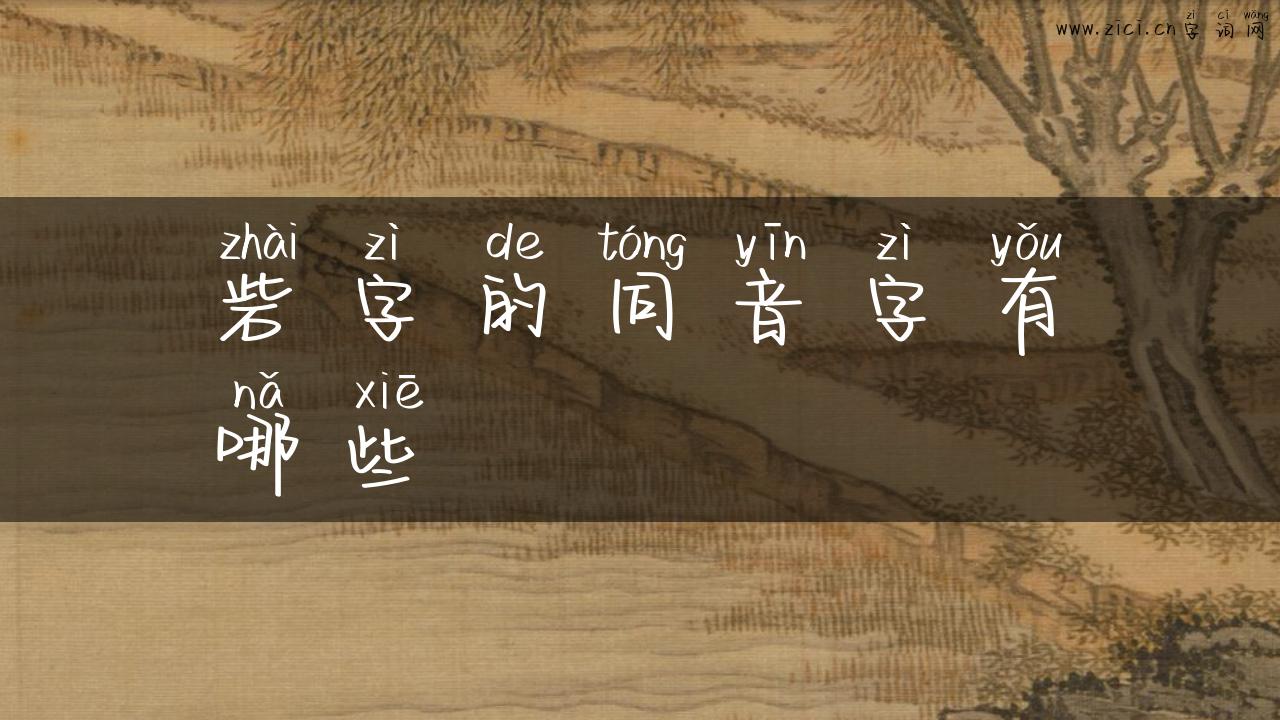 zì cí wǎng
www.zici.cn字词网
zhài zì de tóng yīn zì yǒu
砦字的同音字有
nǎ xiē
哪些